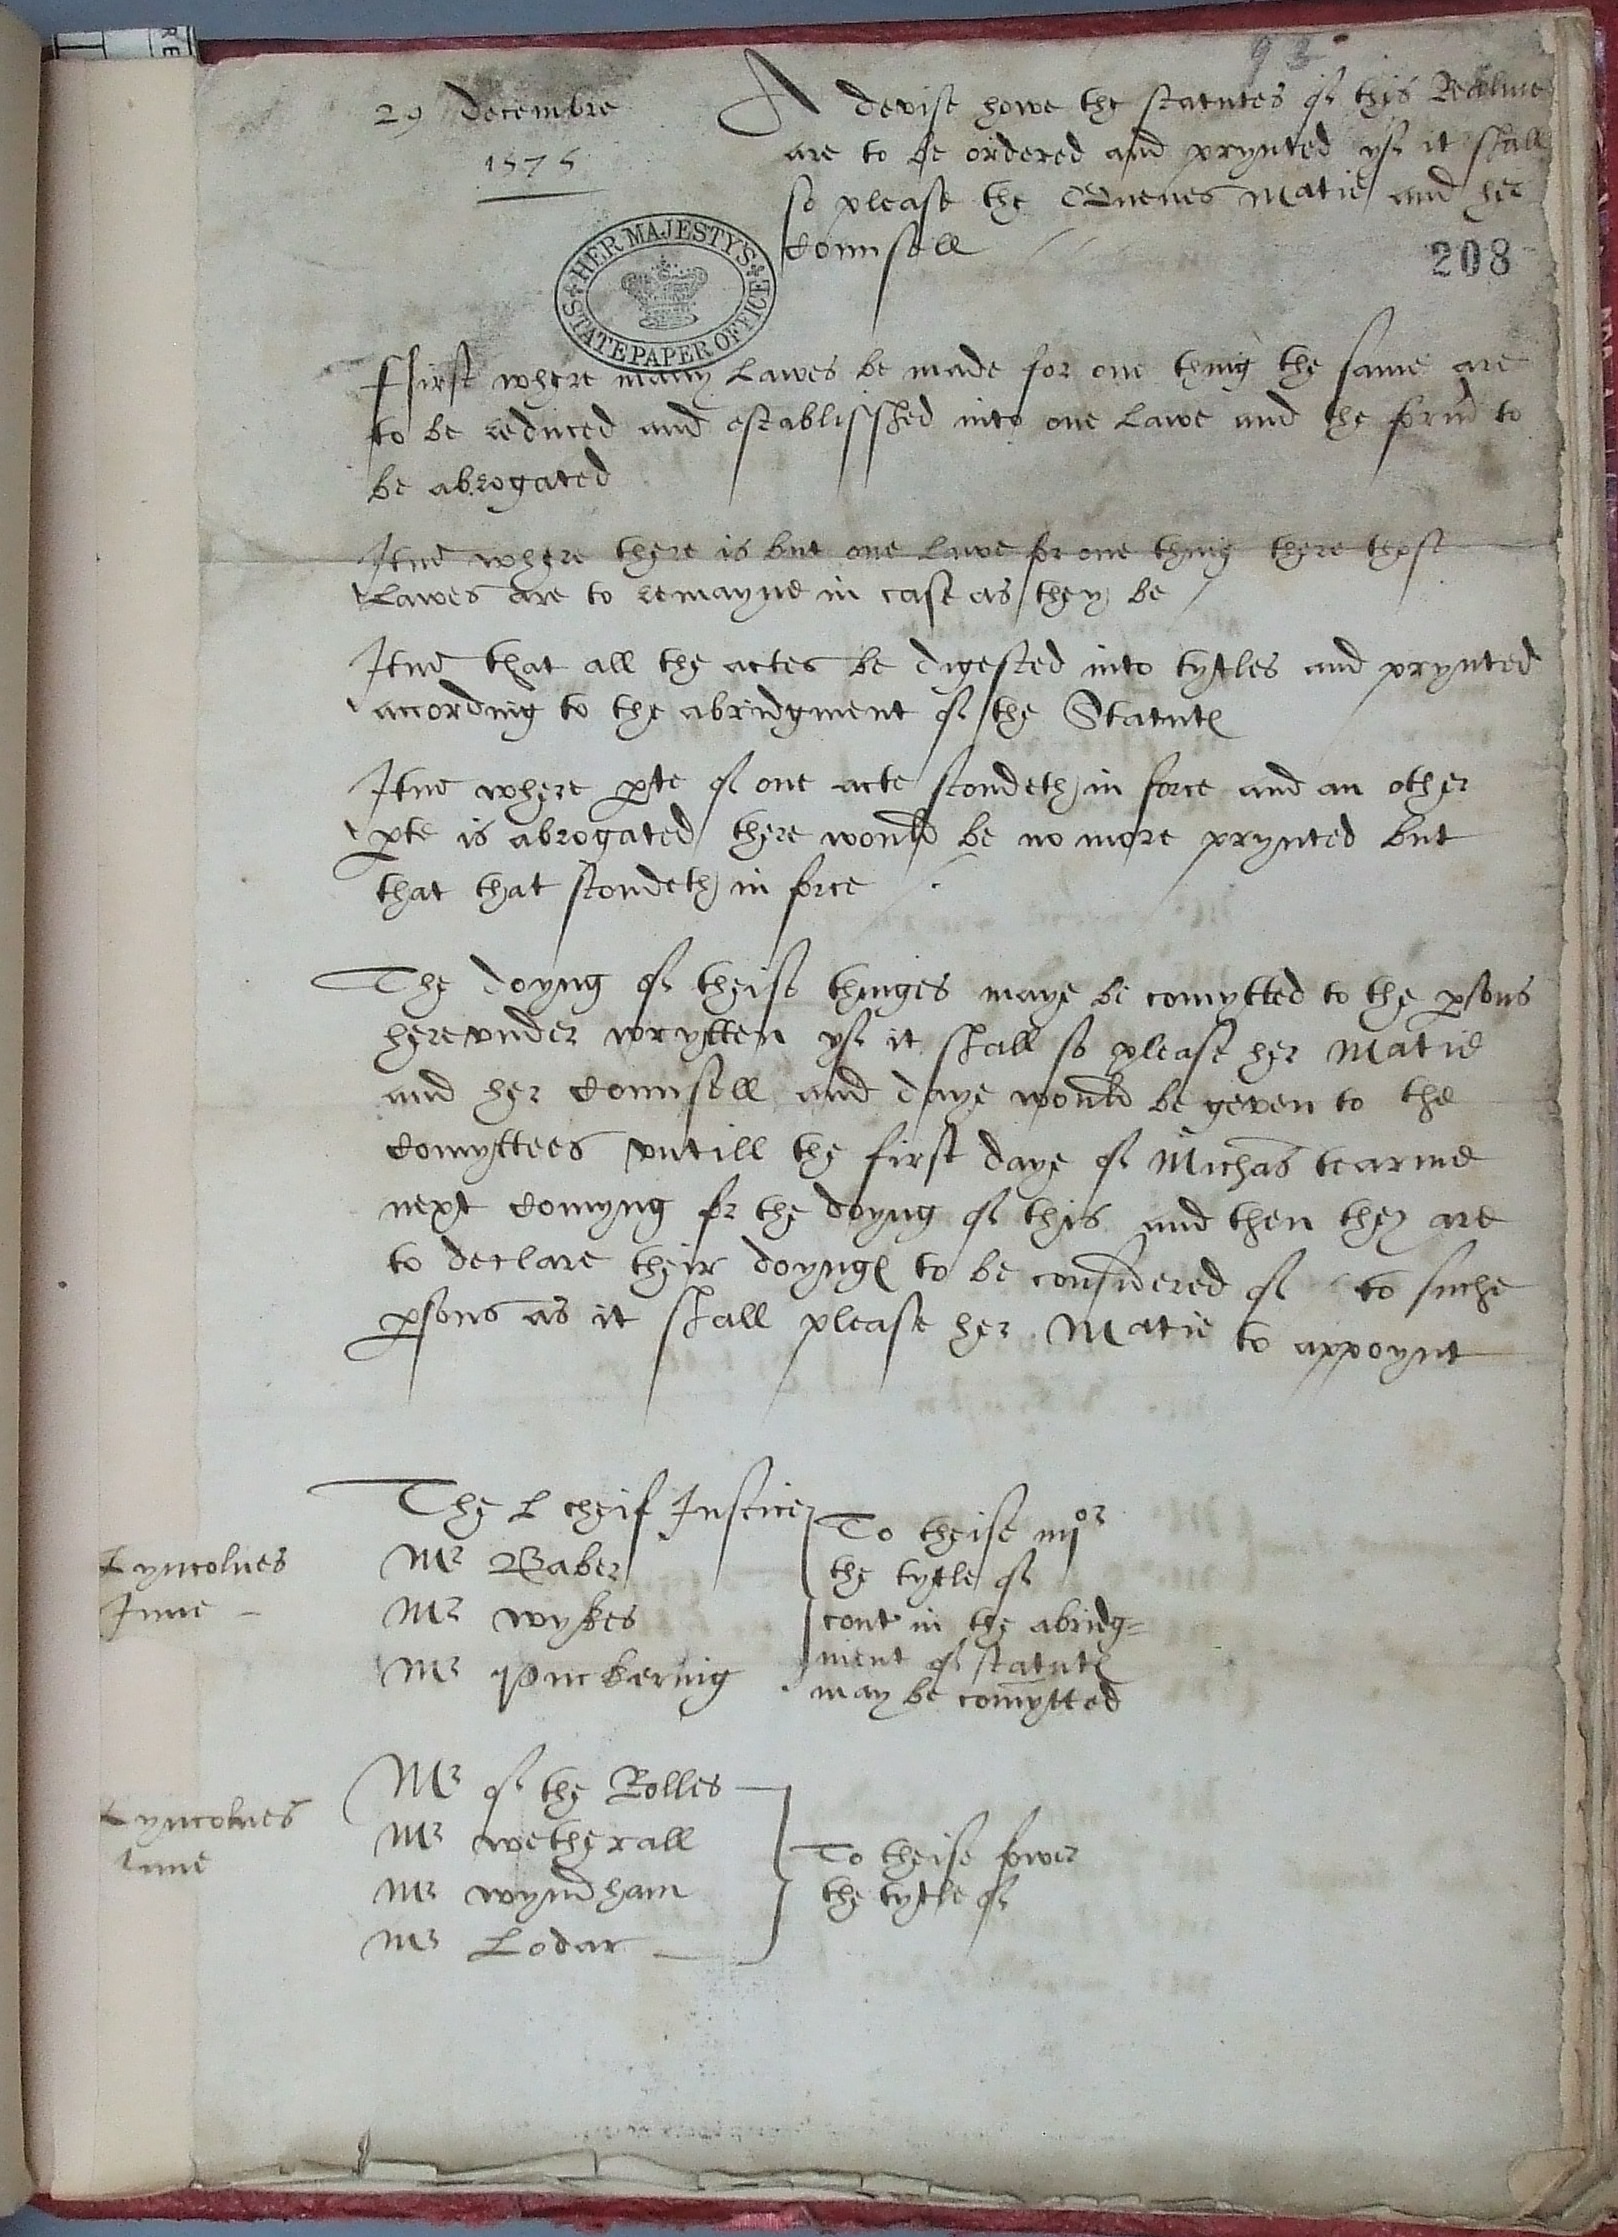 93
29 decembre
1575
A devise howe the statutes of this Realme
are to be ordered and prynted yf it shall
so please the Quenes Matie and her
Counsell
HER MAJESTY'S STATE PAPER OFFICE
208
First where many Lawes be made for one thing the same are
to be reduced and establisshed into one Lawe and the form to
be abrogated
Itm where there is but one Lawe for one thing there those
Lawes are to remayne in case as they be
Itm that all the actes be digested into tytles and prynted
according to the abridgment of the Statutes
Itm where pte of one acte stondeth in force and an other
pte is abrogated there would be no more prynted but
that that stondeth in force
The doyng of theise thinges maye be comytted to the psons
herevnder wrytten yf it shall so please her Matie
and her Counsell and daye would be geven to the
Comyttees vntill the first daye of Michas tearme
next Comyng for the doyng of this and then they are
to declare their doynges to be considered of to suche
psons as it shall please her Matie to appoynt
Lyncolnes
Inne
The L cheif Justice
Mr Baber
Mr wykes
Mr Puckering
To theise iiijor
the tytle of
cont in the abridg=
ment of statutes
may be comytted
Lyncolnes
Inne
Mr of the Rolles
Mr wetherall
Mr wyndham
Mr Lodar
To theise fower
the tytle of